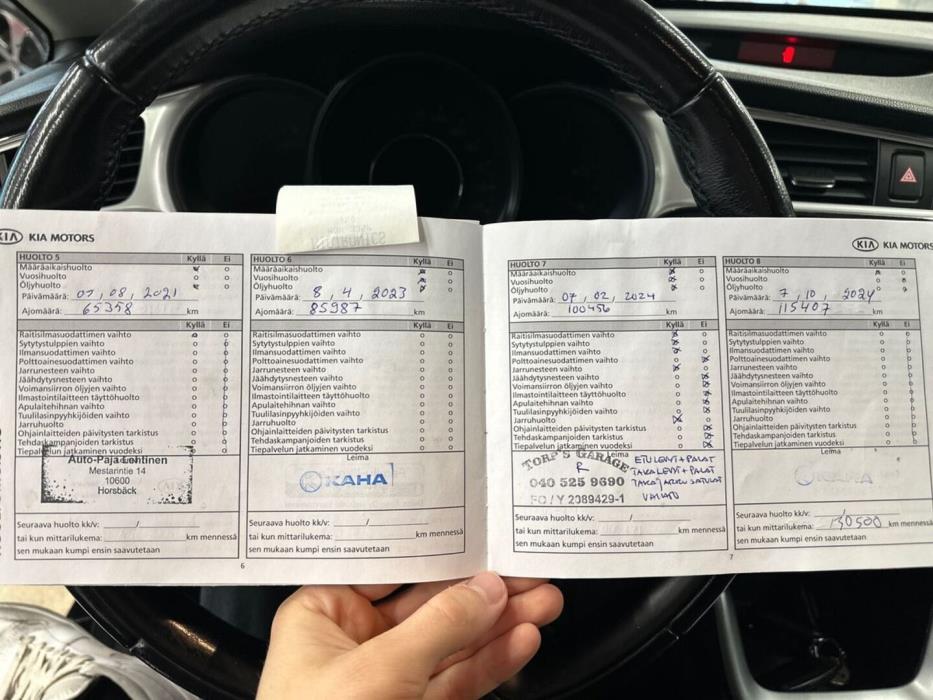 KIA MOTORS
HUOLTO 5 Kyllä Ei
Määräaikaishuolto
Vuosihuolto
Öljyhuolto
Päivämäärä: 07, 08, 2021
Ajomäärä: 65358 km
Kyllä Ei
Raitisilmasuodattimen vaihto
Sytytystulppien vaihto
Ilmansuodattimen vaihto
Polttoainesuodattimen vaihto
Jarrunesteen vaihto
Jäähdytysnesteen vaihto
Voimansiirron öljyjen vaihto
Ilmastointilaitteen täyttöhuolto
Apulaitehihnan vaihto
Tuulilasinpyyhkijöiden vaihto
Jarruhuolto
Ohjainlaitteiden päivitysten tarkistus
Tehdaskampanjoiden tarkistus
Tiepalvelun jatkaminen vuodeksi
Auto-Paja Lehtinen
Mestarintie 14
10600
Horsbäck
Seuraava huolto kk/v: /
tai kun mittarilukema: km mennessä
sen mukaan kumpi ensin saavutetaan
6
HUOLTO 6 Kyllä Ei
Määräaikaishuolto
Vuosihuolto
Öljyhuolto
Päivämäärä: 8, 4, 2023
Ajomäärä: 85987 km
Kyllä Ei
Raitisilmasuodattimen vaihto
Sytytystulppien vaihto
Ilmansuodattimen vaihto
Polttoainesuodattimen vaihto
Jarrunesteen vaihto
Jäähdytysnesteen vaihto
Voimansiirron öljyjen vaihto
Ilmastointilaitteen täyttöhuolto
Apulaitehihnan vaihto
Tuulilasinpyyhkijöiden vaihto
Jarruhuolto
Ohjainlaitteiden päivitysten tarkistus
Tehdaskampanjoiden tarkistus
Tiepalvelun jatkaminen vuodeksi
Leima
KAHA
Seuraava huolto kk/v: /
tai kun mittarilukema: km mennessä
sen mukaan kumpi ensin saavutetaan
KIA MOTORS
HUOLTO 7 Kyllä Ei
Määräaikaishuolto
Vuosihuolto
Öljyhuolto
Päivämäärä: 07, 02, 2024
Ajomäärä: 100456 km
Kyllä Ei
Raitisilmasuodattimen vaihto
Sytytystulppien vaihto
Ilmansuodattimen vaihto
Polttoainesuodattimen vaihto
Jarrunesteen vaihto
Jäähdytysnesteen vaihto
Voimansiirron öljyjen vaihto
Ilmastointilaitteen täyttöhuolto
Apulaitehihnan vaihto
Tuulilasinpyyhkijöiden vaihto
Jarruhuolto
Ohjainlaitteiden päivitysten tarkistus
Tehdaskampanjoiden tarkistus
Tiepalvelun jatkaminen vuodeksi
Leima
TORP'S GARAGE
040 525 9690
FO/Y 2089429-1
ETULEVYT + PALAT
TAKALEVYT + PALAT
Seuraava huolto kk/v: /
tai kun mittarilukema: km mennessä
sen mukaan kumpi ensin saavutetaan
HUOLTO 8 Kyllä Ei
Määräaikaishuolto
Vuosihuolto
Öljyhuolto
Päivämäärä: 7, 10, 2024
Ajomäärä: 115407 km
Kyllä Ei
Raitisilmasuodattimen vaihto
Sytytystulppien vaihto
Ilmansuodattimen vaihto
Polttoainesuodattimen vaihto
Jarrunesteen vaihto
Jäähdytysnesteen vaihto
Voimansiirron öljyjen vaihto
Ilmastointilaitteen täyttöhuolto
Apulaitehihnan vaihto
Tuulilasinpyyhkijöiden vaihto
Jarruhuolto
Ohjainlaitteiden päivitysten tarkistus
Tehdaskampanjoiden tarkistus
Tiepalvelun jatkaminen vuodeksi
Leima
KAHA
Seuraava huolto kk/v: /
tai kun mittarilukema: 130500 km mennessä
sen mukaan kumpi ensin saavutetaan
7